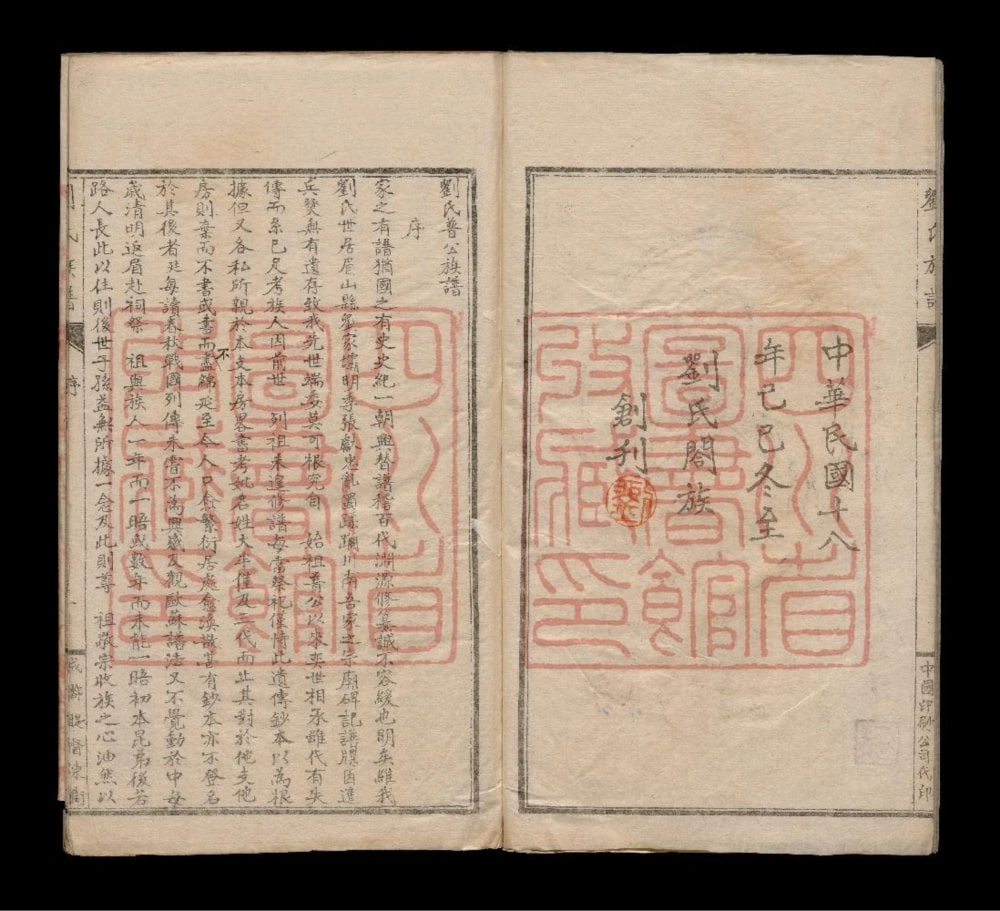 劉氏族譜
中華民國十八
年己巳冬至
劉氏閤族
創刊
中國印刷公司代印
四川省
圖書館
收藏印
劉氏普公族譜
序
家之有譜猶國之有史史紀一朝興替譜稽百代淵源修纂誠不容緩也明矣維我
劉氏世居眉山縣劉家壩明季張獻忠亂蜀蹂躪川南吾家之宗廟碑記譜牒因遭
兵燹無有遺存致我先世端委莫可根究自 始祖普公以來奕世相承雖代有失
傳而系已足考族人因前世 列祖未遑修譜每當祭祀僅情此遺傳鈔本以為根
據但又各私所親於本支本房畧書考妣名姓大半僅及三代而止其對於他支他
房則棄而不書或書而不盡歸 至今人口愈繁衍居處愈渙散甚有鈔本亦不登名
於其後者 每讀春秋戰國列傳未嘗不為興感及觀歐蘇譜法又不覺動於中每
歲清明返眉赴祠祭 祖與族人一年而一晤或數年而未能一晤初本昆弟後若
路人長此以往則後世子孫益無所據一念及此則尊 祖敬宗收族之心油然以
序